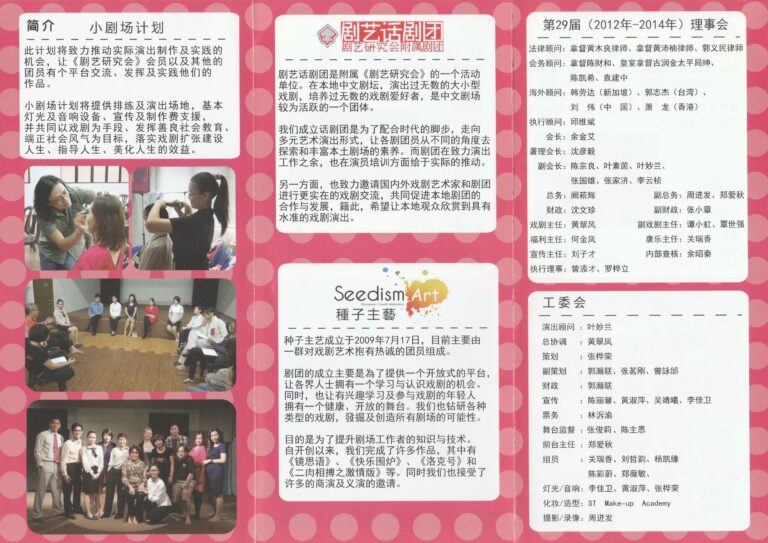 简介 小剧场计划
此计划将致力推动实际演出制作及实践的
机会，让《剧艺研究会》会员以及其他的
团员有个平台交流、发挥及实践他们的
作品。
小剧场计划将提供排练及演出场地，基本
灯光及音响设备、宣传及制作费支援，
并共同以戏剧为手段、发挥善良社会教育、
端正社会风气为目标，落实戏剧扩张建设
人生、指导人生、美化人生的效益。
剧艺话剧团
剧艺研究会附属剧团
剧艺话剧团是附属《剧艺研究会》的一个活动
单位。在本地中文剧坛，演出过无数的大小型
戏剧，培养过无数的戏剧爱好者，是中文剧场
较为活跃的一个团体。
我们成立话剧团是为了配合时代的脚步，走向
多元艺术演出形式，让各剧团员从不同的角度去
探索和丰富本土剧场的素养。而剧团在致力演出
工作之余，也在演员培训方面给于实际的推动。
另一方面，也致力邀请国内外戏剧艺术家和剧团
进行更实在的戏剧交流，共同促进本地剧团的
合作与发展，籍此，希望让本地观众欣赏到具有
水准的戏剧演出。
Seedism.Art
種子主藝
种子主艺成立于2009年7月17日，目前主要由
一群对戏剧艺术抱有热诚的团员组成。
剧团的成立主要是為了提供一个开放式的平台，
让各界人士拥有一个学习与认识戏剧的机会。
同时，也让有兴趣学习及参与戏剧的年轻人
拥有一个健康、开放的舞台。我们也钻研各种
类型的戏剧，發掘及创造所有剧场的可能性。
目的是为了提升剧场工作者的知识与技术。
自开创以来，我们完成了许多作品，其中有
《镜思语》、《快乐围炉》、《洛克号》和
《二肉相搏之激情版》等。同时我们也接受了
许多的商演及义演的邀请。
第29届（2012年-2014年）理事会
法律顾问：拿督黄木良律师、拿督黄沛楠律师、郭义民律师
会务顾问：拿督陈财和、皇室拿督古润金太平局绅、
陈凯希、袁建中
海外顾问：韩劳达（新加坡）、郭志杰（台湾）、
刘 伟（中 国）、萧 龙（香港）
执行顾问：邱维斌
会长：余金艾
署理会长：沈彦毅
副会长：陈宗良、叶素茵、叶妙兰、
张国雄、张家济、李云桢
总务：阙菘辉 副总务：周进发、郑爱秋
财政：沈文珍 副财政：张小章
戏剧主任：黄翠凤 副戏剧主任：谭小虹、覃世强
福利主任：何金凤 康乐主任：关瑞香
宣传主任：刘子才 内部查核：余昭秦
执行理事：曾添才、罗桦立
工委会
演出顾问：叶妙兰
总协调 ：黄翠凤
策划 ：张桦荣
副策划 ：郭瀚联、张茗刚、曾詠邰
财政 ：郭瀚联
宣传 ：陈丽馨、黄淑萍、吴靖曦、李佳卫
票务 ：林沂渝
舞台监督：张俊莉、陈主恩
前台主任：郑爱秋
组员 ：关瑞香、刘哲韵、杨凯缘
陈彩蔚、郑薇敏、
灯光/音响：李佳卫、黄淑萍、张桦荣
化妆/造型：ST Make-up Academy
摄影/录像：周进发